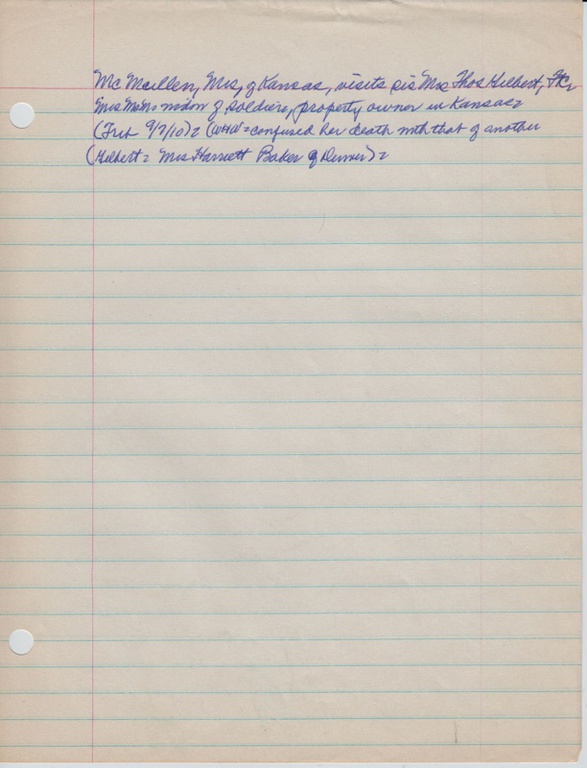 McMullen, Mrs, of Kansas, visits sis Mrs Thos Hilbert, FtC,
Mrs McM= widow of soldier, property owner in Kansas=
(Trib 9/2/10)= (WHW=confused her death with that of another
(Hilbert= Mrs Harriett Baker of Denver)=